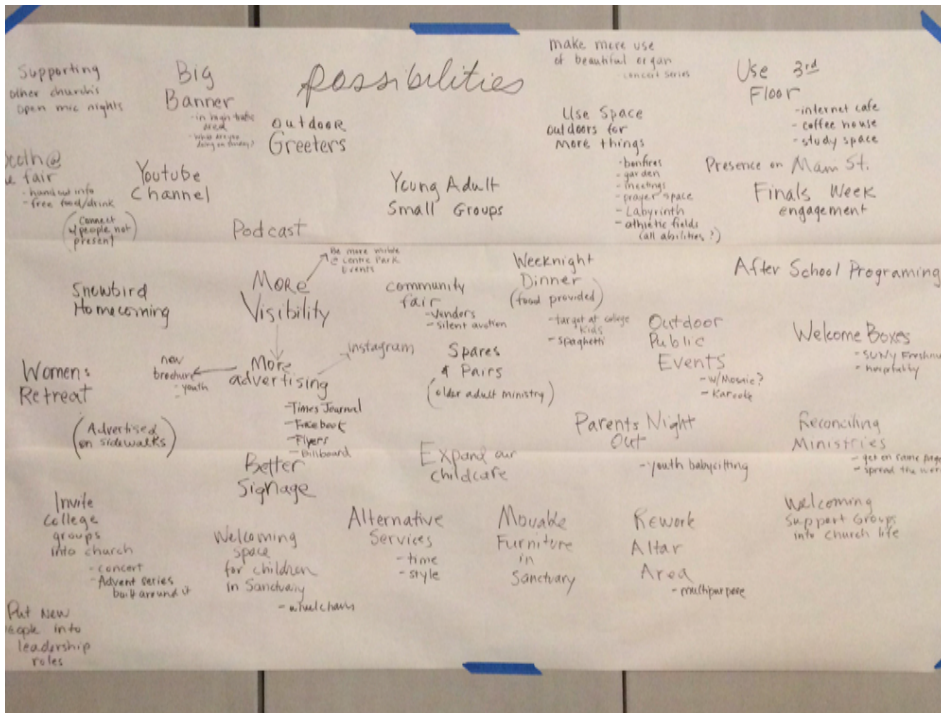 possibilities
Supporting
other church's
open mic nights
Big
Banner
- in high traffic
area
- What are you
doing on Sunday?
outdoor
Greeters
make more use
of beautiful organ
- concert series
Use 3rd
Floor
- internet cafe
- coffee house
- study space
Use Space
outdoors for
More things
- bonfires
- garden
- meetings
- prayer space
- Labyrinth
- athletic fields
(all abilities?)
Presence on Main St.
Finals Week
engagement
fair
- hand out info
- free food/drink
(connect
w/people not
present)
Youtube
Channel
Podcast
Young Adult
Small Groups
Be more visible
@ Centre Park
Events
More
Visibility
Snowbird
Homecoming
community
fair
- Venders
- silent auction
Weeknight
Dinner
(food provided)
- target at college
kids
- spaghetti
After School Programing
Outdoor
Public
Events
- w/Mosaic?
- Karaoke
Welcome Boxes
- SUNY Freshman
- hospitality
Womens
Retreat
new
brochure
- youth
More
advertising
- Times Journal
- Facebook
- Flyers
- Billboard
instagram
Spares
& Pairs
(older adult ministry)
(Advertised
on sidewalks)
Better
Signage
Expand our
childcare
Parents Night
Out
- youth babysitting
Reconciling
Ministries
- get on same page
- spread the word
Invite
College
groups
into church
- concert
- Advent series
built around it
Welcoming
space
for children
in Sanctuary
- wheelchairs
Alternative
Services
- time
- style
Movable
Furniture
in
Sanctuary
Rework
Altar
Area
- multipurpose
Welcoming
Support Groups
into church life
Put New
people into
leadership
roles